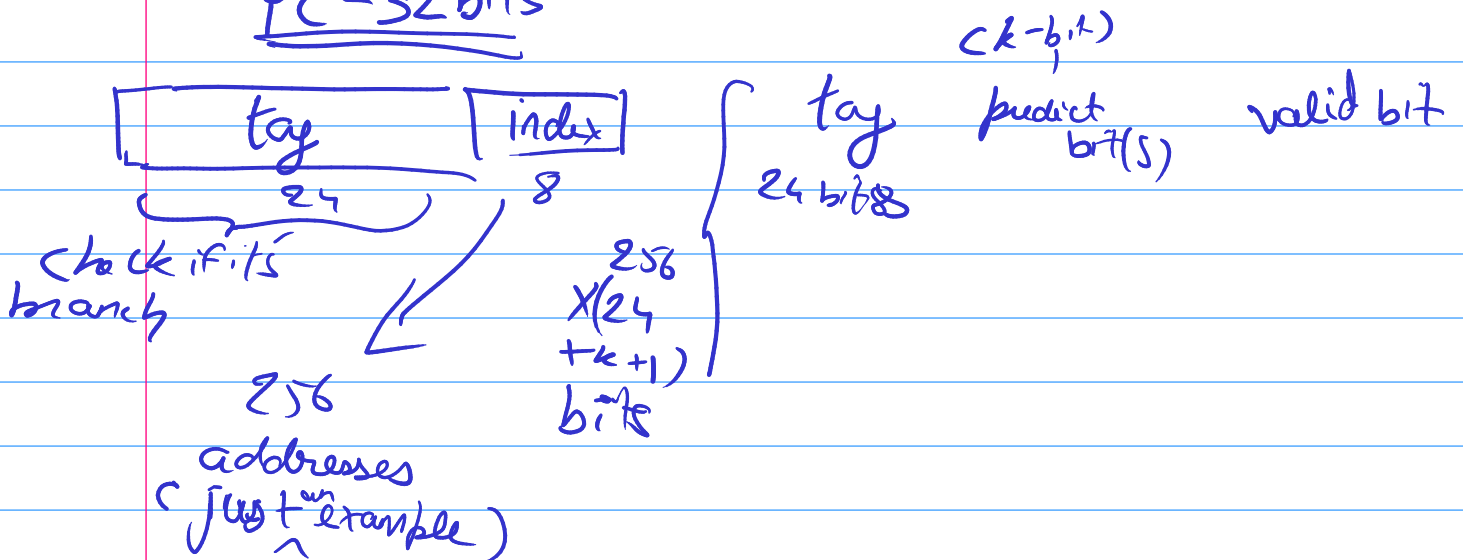 PC - 32 bits
(k-bit)
tag index
tag predict bit(s) valid bit
24 8
24 bits
check if its
branch
256
X(24
+k+1)
bits
256
addresses
(just an example)